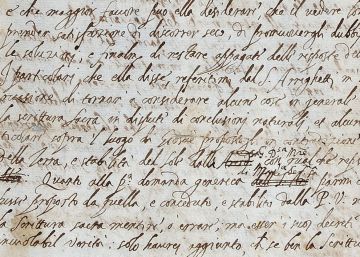 e che maggior favore può ella desiderare che il vedere
prender satisfazione di discorrer seco, di promuovergli dubbi
le soluzioni, e finalm. di restare appagati delle risposte
I particolari che ella disse referitimi dal S. Arrighetti, m
occasione di tornar a considerare alcune cose in general
la scrittura sacra in dispute di conclusioni naturali, et alcun
ticolari sopra 'l luogo di Giosue propostoli in contradizion
della terra, e stabilità del sole dalla con qualche re
Quanto alla p.ª domanda generica di M. parmi
fusse proposto da quella, e conceduto, e stabilito dalla P. V.
la scrittura sacra mentire, o errare; ma esser i suoi decreti
inviolabil verità: solo haurei aggiunto, che se ben la Scrittur